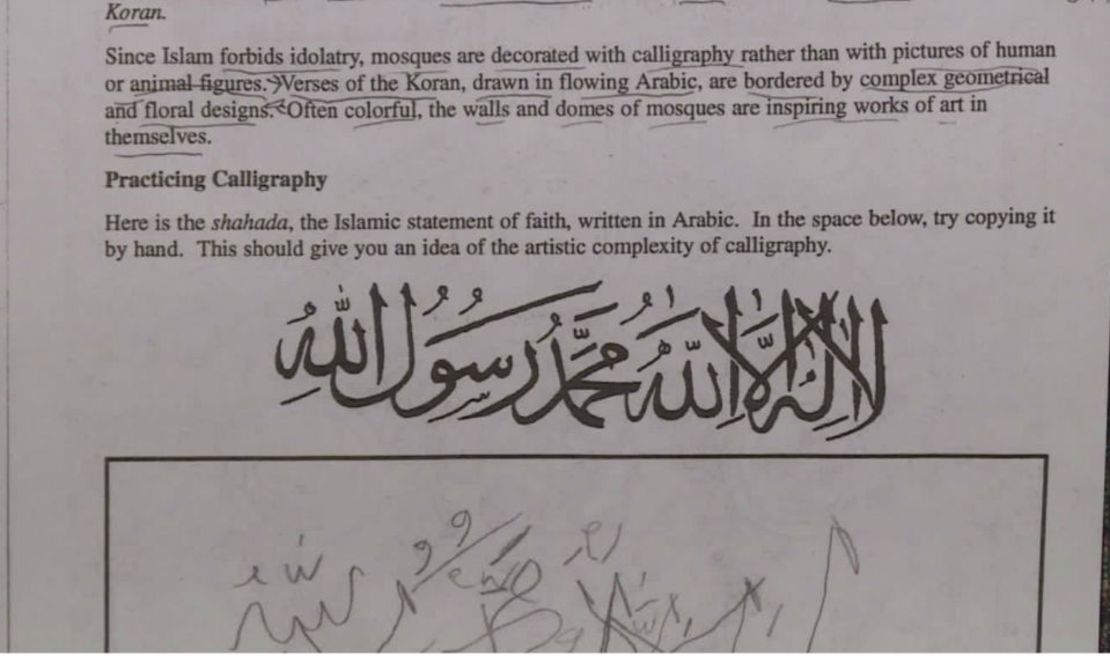 Koran.
Since Islam forbids idolatry, mosques are decorated with calligraphy rather than with pictures of human
or animal figures. Verses of the Koran, drawn in flowing Arabic, are bordered by complex geometrical
and floral designs. Often colorful, the walls and domes of mosques are inspiring works of art in
themselves.
Practicing Calligraphy
Here is the shahada, the Islamic statement of faith, written in Arabic. In the space below, try copying it
by hand. This should give you an idea of the artistic complexity of calligraphy.
لا إله إلا الله محمد رسول الله